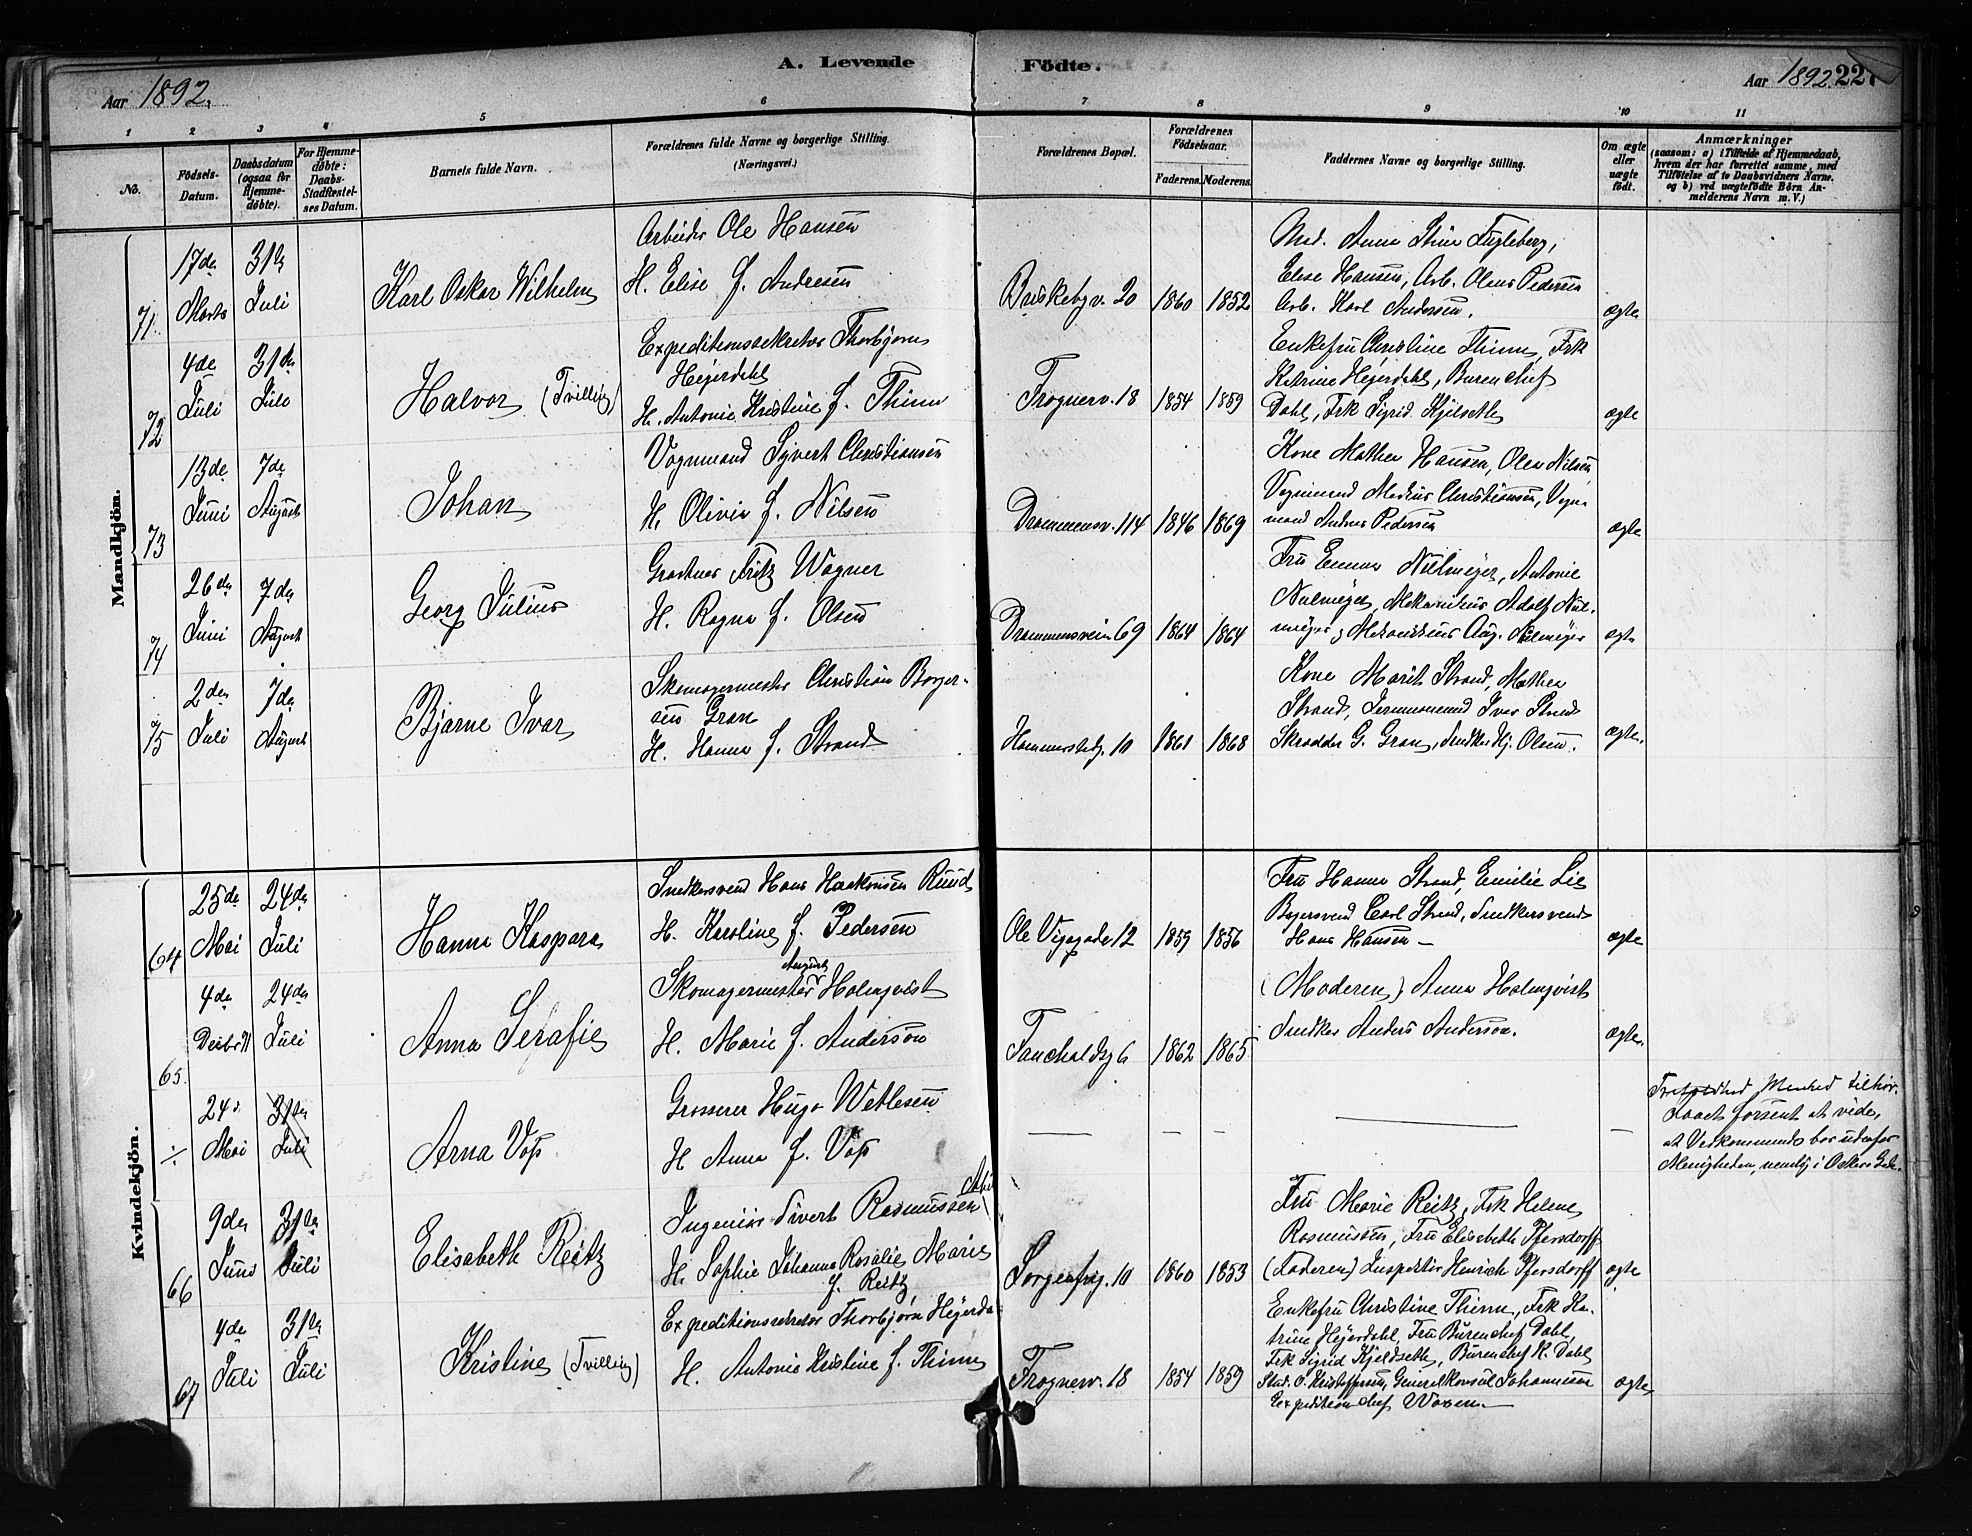 A. Levende Födte.
Aar 1892.
Aar 1892. 227
1 2 3 4 5 6 7 8 9 10 11
No.
Födsels-Datum.
Daabsdatum (ogsaa for Hjemme-döbte).
For Hjemme-döbte: Daabs-Stadfæstel-ses Datum.
Barnets fulde Navn.
Forældrenes fulde Navne og borgerlige Stilling.
(Næringsvei.)
Forældrenes Bopæl.
Forældrenes Födselsaar.
Faderens. Moderens.
Faddernes Navne og borgerlige Stilling.
Om ægte eller uægte födt.
Anmærkninger
(saasom: a) i Tilfælde af Hjemmedaab,
hvem der har forrettet samme, med
Tilföielse af to Daabsvidners Navne,
og b) ved uægtefödte Börn An-
melderens Navn m. V.)
Mandkjön.
71. 17de Marts
31te Juli
Karl Oskar Wilhelm
Arbeider Ole Hansen
H. Elise f. Andresen
Briskebyv. 20
1860 1852
Mad. Anna Stine Fugleberg,
Elise Hansen, Arb. Olaus Pedersen
Arb. Karl Andersen.
ægte
72 4de Juli
31te Juli
Halvor (Tvilling)
Expeditionssekretær Thorbjørn
Heyerdahl
H. Antonie Kristine f. Thinn
Frognerv. 18
1854 1859
Enkefru Christine Thinn, Frk
Katrine Heyerdahl, Bureauchef
Dahl, Frk Sigrid Kjelseth
ægte
73 13de Juni
7de August
Johan
Vognmand Syvert Christiansen
H. Olivia f. Nilsen
Drammensv. 114
1846 1869
Kone Mathea Hansen, Olea Nilsen
Vognmand Christiansen, Vogn-
mand Pedersen
ægte
74 26de Juni
7de August
Georg Julius
Gartner Fritz Wagner
H. Ragna f. Olsen
Drammensvein 69
1864 1864
Fru Emma Nülmeyer, Antonie
Nülmeyer, Mekanikus Adolf Nül-
meyer, Mekanikus Aug. Nülmeyer
ægte
75 2den Juli
7de August
Bjarne Ivar
Skomagermester Christian Borger-
sen Gran
H. Hanna f. Strand
Hammerstadg. 10
1861 1868
Kone Marit Strand, Mathea
Strand, Ivar Strand
Skrædder G. Gran, Snedker Hj. Olsen.
ægte.
Kvindekjön.
64 25de Mai
24de Juli
Hanna Kaspara
Snedkersvend Hans Haakonsen Ruud
H. Karoline f. Pedersen
Ole Vigsgade 12
1859 1856
Fru Hanna Strand, Emilie Lie
Bagersvend Carl Strand, Snedkersvend
Hans Hansen —
ægte
65. 4de Decbr 91
24de Juli
Anna Serafie
Skomagermester August Holmqvist
H. Marie f. Anderson
Fauchaldsg 6
1862 1865
(Moderen) Anna Holmqvist
Snedker Anders Anderson.
ægte.
÷ 24de Mai
31te Juli
Arna Voss
Grosserer Hugo Wetlesen
H Anna f. Voss
— — — — —
Menhed tilhør.
Laaet forsent at vide,
at Vedkommende bor udenfor
Menigheden, nemlig i Oskars Gade.
66 9de Juni
31te Juli
Elisabeth Reitz
Ingeniør Sivert Rasmussen
H. Sophie Johanna Rosalie Marie
f. Reitz
Sorgenfrig. 10
1860 1853
Fru Marie Reitz, Frk Helene
Rasmussen, Fru Elisabeth Pfersdorff
(Faderen) Inspektør Henrich Pfersdorff
ægte
67 4de Juli
31te Juli
Kristine (Tvilling)
Expeditionssekretær Thorbjørn Heyerdahl
H. Antonie Kristine f. Thinn
Frognerv. 18
1854 1859
Enkefru Christine Thinn, Frk Ka-
trine Heyerdahl, Fru Bureauchef Dahl,
Frk Sigrid Kjeldseth, Bureauchef K. Dahl
Stud. O. Kristoffersen, Generalkonsul Johannesen
Expeditionschef Woxen. —
ægte